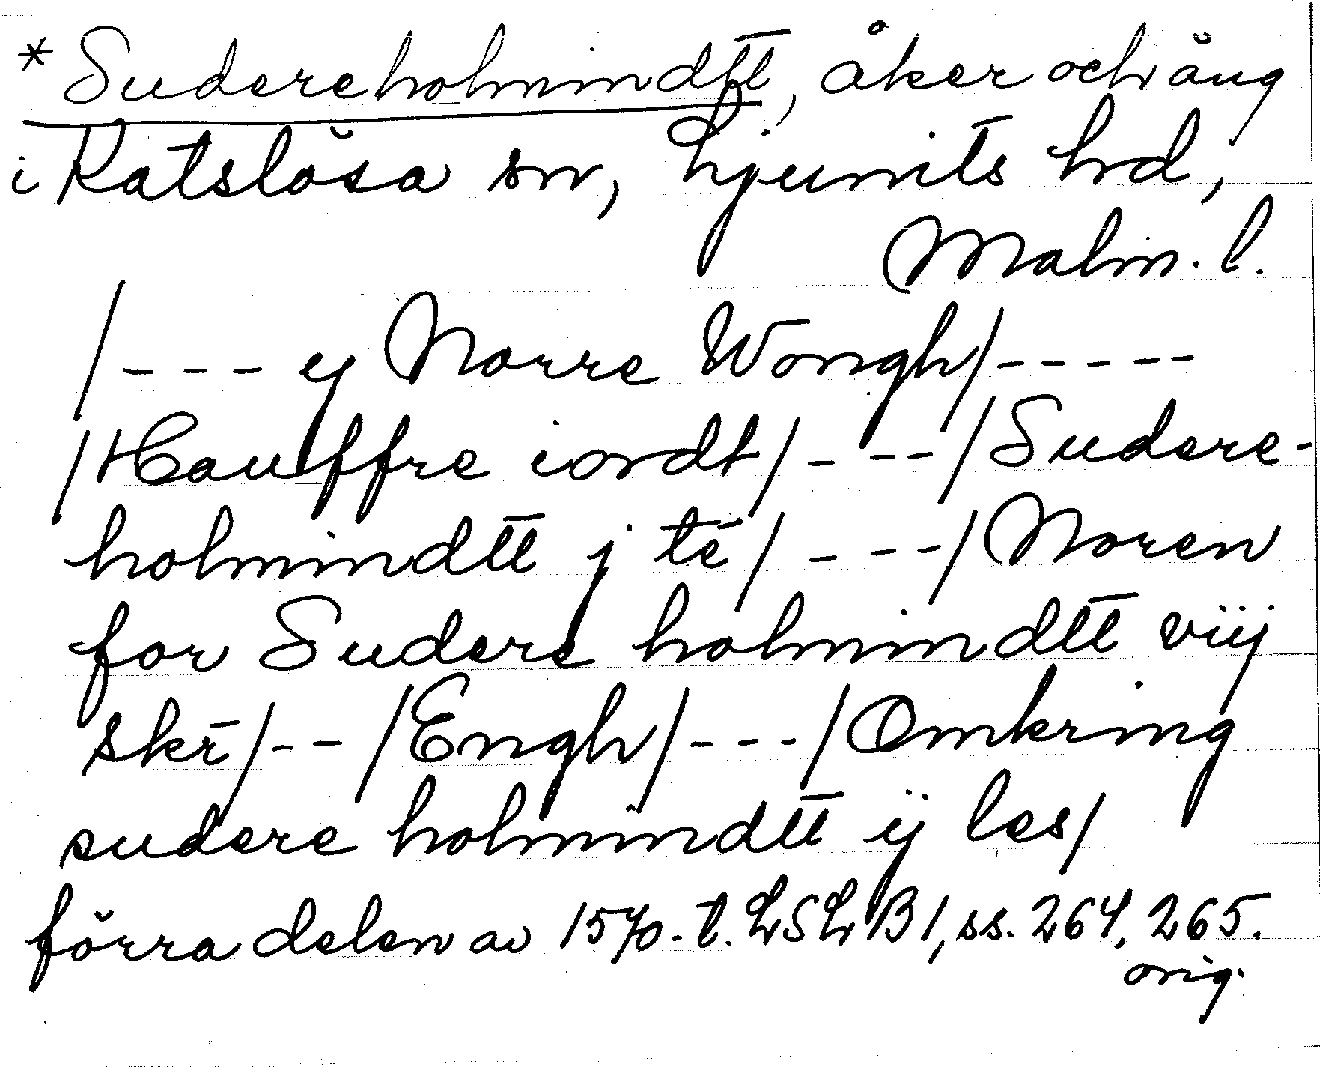 * Sudereholmindtt, åker och äng
i Katslösa sn, Ljunits hd,
Malm. l.
/--- ij Norre Wongh/-----
/Hauffre iordt/---/Sudere-
holmindtt j te/---/Noren
for Sudere holmindtt viij
skr̄/--/Engh/---/Omkring
sudere holmindtt ij les/
förra delen av 1570-t. LSLB1, ss. 264, 265.
orig.